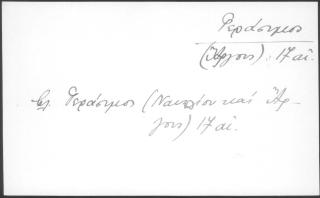 Γεράσιμος
(Άργους). 17 αἰ.
βλ. Γεράσιμος (Ναυπλίου καί Ἄρ-
γους) 17 αἰ.